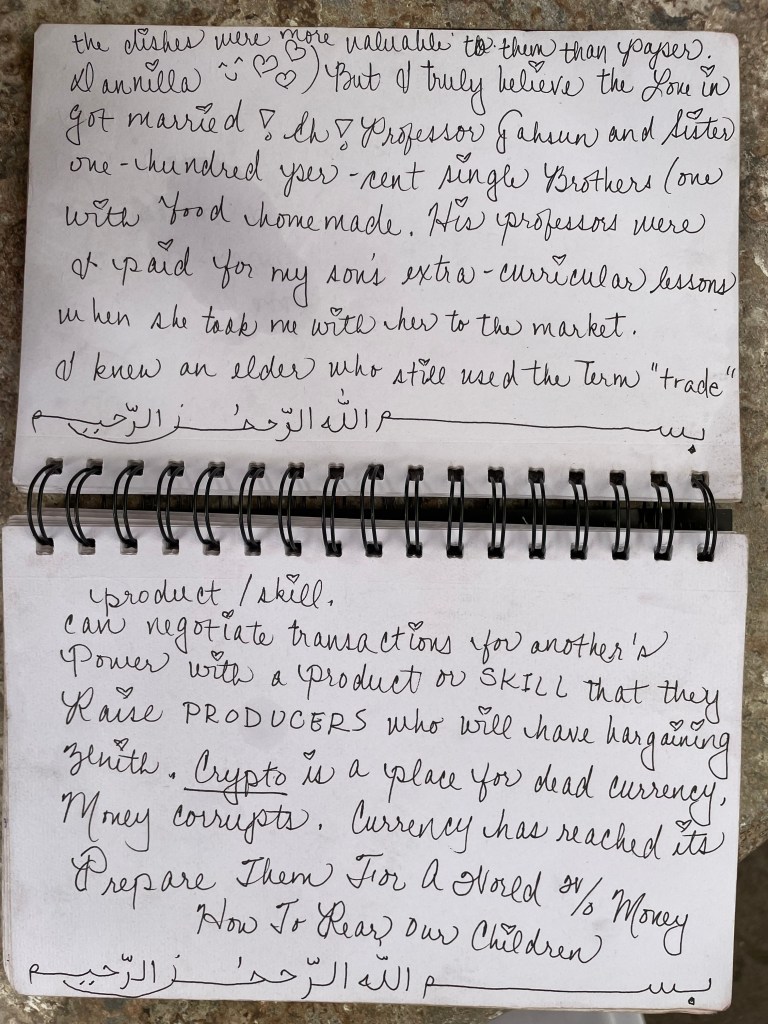 the dishes were more valuable to them than paper.
Dannilla ) But I truly believe the Love in
got married! Eh! Professor Jahsun and Sister
one-hundred per-cent single Brothers (one
with food homemade. His professors were
I paid for my son's extra-curricular lessons
when she took me with her to the market.
I knew an elder who still used the Term "trade"
بسم الله الرّحمٰن الرّحيم
product / skill.
can negotiate transactions for another's
Power with a product or SKILL that they
Raise PRODUCERS who will have bargaining
zenith. Crypto is a place for dead currency.
Money corrupts. Currency has reached its
Prepare Them For A World w/o Money
How To Rear Our Children
بسم الله الرّحمٰن الرّحيم